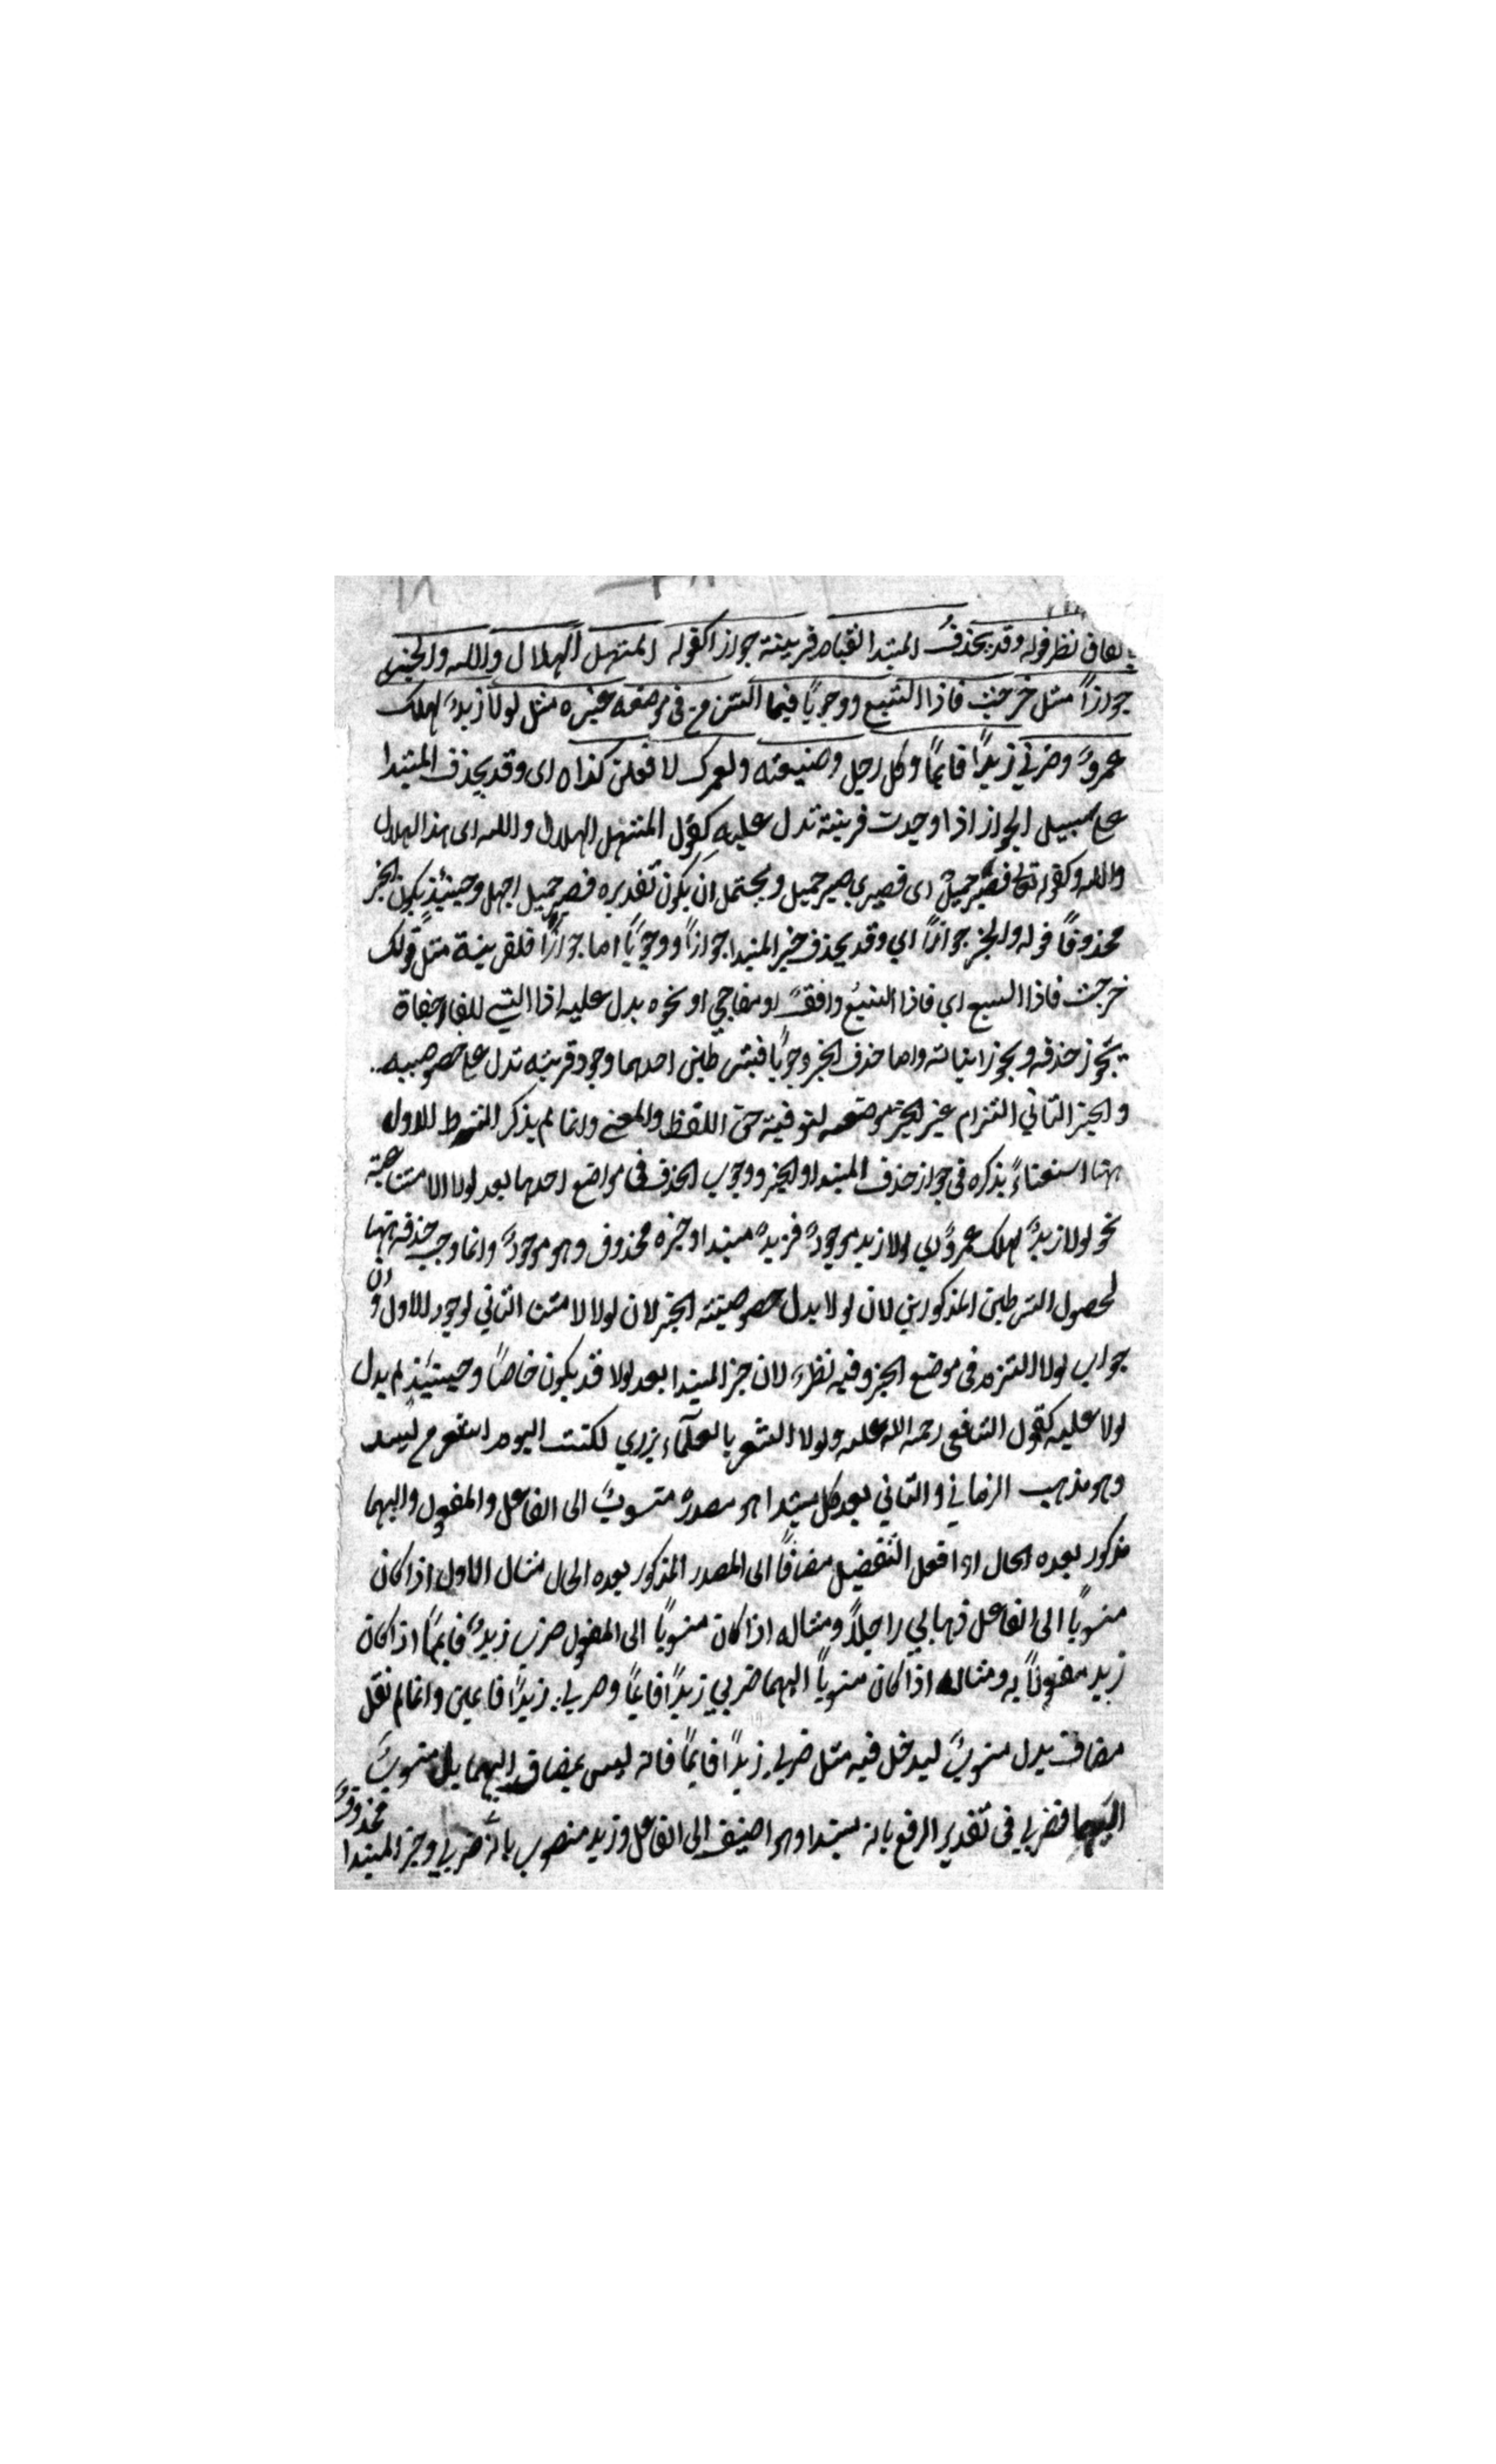 نظر قوله وقد يحذف المبتدا لقيام قرينة جوازا كقوله المستهل الهلال والله والخبر
جوازاً مثل خرجت فاذا السبع ووجوبًا فيما التزم في موضعه غيره مثل لولا زيدٌ لهلك
عمروٌ وضربي زيدًا قايمًا وكل رجل وضيعته ولعمرك لافعلن كذا اى وقد يحذف المبتدا
على سبيل الجواز اذا وجدت قرينة تدل عليه كقول المستهل الهلال والله اى هذا الهلال
والله وكقوله تعالى فصبر جميل اى فصبري صبر جميل ويحتمل ان يكون تقديره فصبر جميل اجمل وحينئذ يكون الخبر
محذوفًا قوله والخبر جوازًا اي وقد يحذف خبر المبتدا جوازًا ووجوبًا اما جوازًا فلقرينة مثل قولك
خرجت فاذا السبع اي فاذا السبع واقف او مفاجي او نحوه يدل عليه اذا التي للمفاجاة
يجوز حذفه ويجوز اثباته واما حذف الخبر وجوبًا فبشرطين احدهما وجود قرينه تدل على خصوصيته
و الثاني التزام غير الخبر موضعه لتوفية حق اللفظ والمعنى وانما لم يذكر الشرط الاول
ههنا استغناءً بذكره في جواز حذف المبتدا والخبر ووجوب الحذف في مواضع احدها بعد لولا الامتناعية
نحو لولا زيدٌ لهلك عمروٌ اي لولا زيد موجودٌ فزيدٌ مبتدا وخبره محذوف وهو موجودٌ وانما وجب حذفه ههنا
لحصول الشرطين المذكورين لان لولا يدل خصوصيته الخبر لان لولا لامتناع الثاني لوجود الاول ولان
جواب لولا التزم في موضع الخبر وفيه نظر لان خبر المبتدا بعد لولا قد يكون خاصًا وحينئذ لم يدل
لولا عليه كقول الشافعي رحمة الله عليه ولولا الشعر بالعلمآء يزري لكنت اليوم اشعر من لبيد
وهو مذهب الرماني والثاني بعد كل مبتدا هو مصدرٌ منسوبٌ الى الفاعل والمفعول واليهما
مذكور بعده الحال او افعل التفضيل مضافًا الى المصدر المذكور بعده الحال مثال الاول اذا كان
منسوبًا الى الفاعل ذهابي راجلًا ومثاله اذا كان منسوبًا الى المفعول ضرب زيدٌ قايمًا اذا كان
زيد مفعولًا به ومثاله اذا كان منسوبًا اليهما ضربي زيدًا قايمًا وضربي زيدًا قايمين وانما لم نقل
مضاف بدل منسوبٌ ليدخل فيه مثل ضربي زيدًا قايمًا فانه ليس بمضاف اليهما بل منسوبٌ
اليهما فضربي في تقدير الرفع بانه مبتدا وهو اضيف الى الفاعل وزيد منصوب بانه ضربي وخبر المبتدا
محذوفٌ